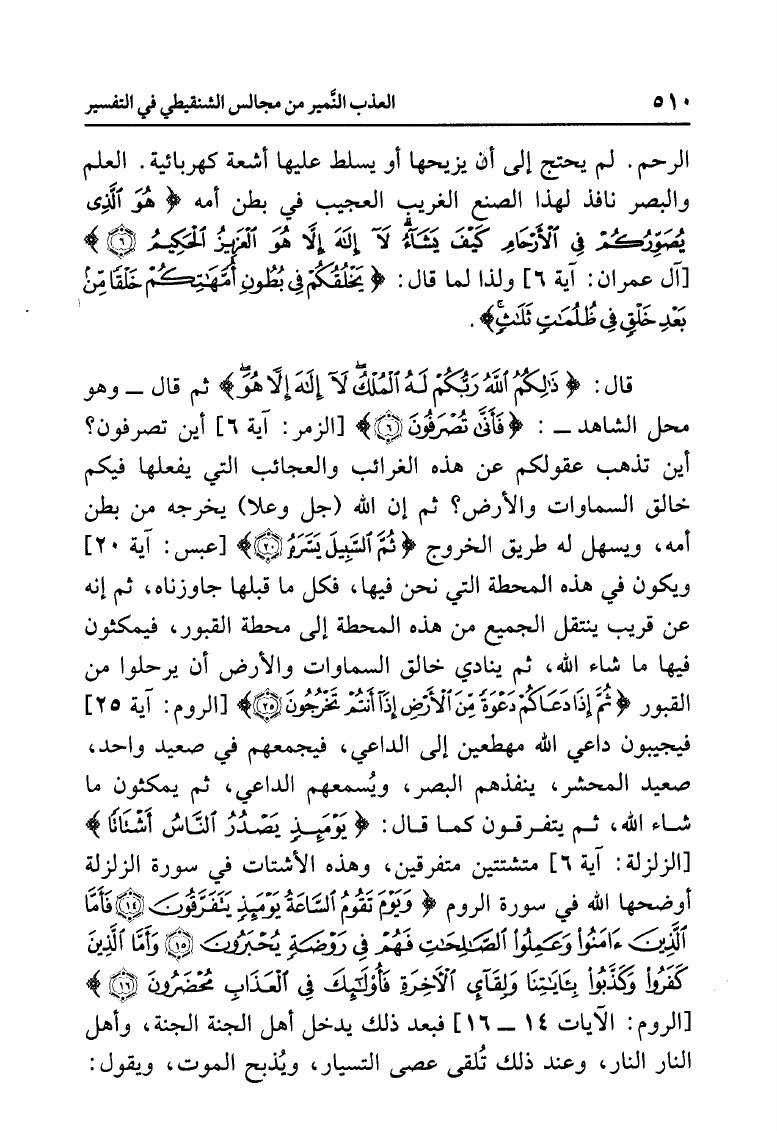 ٥١٠ العذب النَّمير من مجالس الشنقيطي في التفسير
الرحم. لم يحتج إلى أن يزيحها أو يسلط عليها أشعة كهربائية. العلم
والبصر نافذ لهذا الصنع الغريب العجيب في بطن أمه ﴿ هُوَ ٱلَّذِى
يُصَوِّرُكُمْ فِى ٱلْأَرْحَامِ كَيْفَ يَشَآءُ ۚ لَآ إِلَٰهَ إِلَّا هُوَ ٱلْعَزِيزُ ٱلْحَكِيمُ ٦ ﴾
[آل عمران: آية ٦] ولذا لما قال: ﴿ يَخْلُقُكُمْ فِى بُطُونِ أُمَّهَٰتِكُمْ خَلْقًا مِّنۢ
بَعْدِ خَلْقٍ فِى ظُلُمَٰتٍ ثَلَٰثٍ ۚ﴾.
قال: ﴿ ذَٰلِكُمُ ٱللَّهُ رَبُّكُمْ لَهُ ٱلْمُلْكُ ۖ لَآ إِلَٰهَ إِلَّا هُوَ ۖ ﴾ ثم قال ـ وهو
محل الشاهد ـ : ﴿ فَأَنَّىٰ تُصْرَفُونَ ٦ ﴾ [الزمر: آية ٦] أين تصرفون؟
أين تذهب عقولكم عن هذه الغرائب والعجائب التي يفعلها فيكم
خالق السماوات والأرض؟ ثم إن الله (جل وعلا) يخرجه من بطن
أمه، ويسهل له طريق الخروج ﴿ ثُمَّ ٱلسَّبِيلَ يَسَّرَهُۥ ٢٠ ﴾ [عبس: آية ٢٠]
ويكون في هذه المحطة التي نحن فيها، فكل ما قبلها جاوزناه، ثم إنه
عن قريب ينتقل الجميع من هذه المحطة إلى محطة القبور، فيمكثون
فيها ما شاء الله، ثم ينادي خالق السماوات والأرض أن يرحلوا من
القبور ﴿ ثُمَّ إِذَا دَعَاكُمْ دَعْوَةً مِّنَ ٱلْأَرْضِ إِذَآ أَنتُمْ تَخْرُجُونَ ٢٥ ﴾ [الروم: آية ٢٥]
فيجيبون داعي الله مهطعين إلى الداعي، فيجمعهم في صعيد واحد،
صعيد المحشر، ينفذهم البصر، ويُسمعهم الداعي، ثم يمكثون ما
شاء الله، ثم يتفرقون كما قال: ﴿ يَوْمَئِذٍ يَصْدُرُ ٱلنَّاسُ أَشْتَاتًا ﴾
[الزلزلة: آية ٦] متشتتين متفرقين، وهذه الأشتات في سورة الزلزلة
أوضحها الله في سورة الروم ﴿ وَيَوْمَ تَقُومُ ٱلسَّاعَةُ يَوْمَئِذٍ يَتَفَرَّقُونَ ١٤ فَأَمَّا
ٱلَّذِينَ ءَامَنُوا۟ وَعَمِلُوا۟ ٱلصَّٰلِحَٰتِ فَهُمْ فِى رَوْضَةٍ يُحْبَرُونَ ١٥ وَأَمَّا ٱلَّذِينَ
كَفَرُوا۟ وَكَذَّبُوا۟ بِـَٔايَٰتِنَا وَلِقَآئِ ٱلْءَاخِرَةِ فَأُو۟لَٰٓئِكَ فِى ٱلْعَذَابِ مُحْضَرُونَ ١٦ ﴾
[الروم: الآيات ١٤ ـ ١٦] فبعد ذلك يدخل أهل الجنة الجنة، وأهل
النار النار، وعند ذلك تُلقى عصى التسيار، ويُذبح الموت، ويقول: